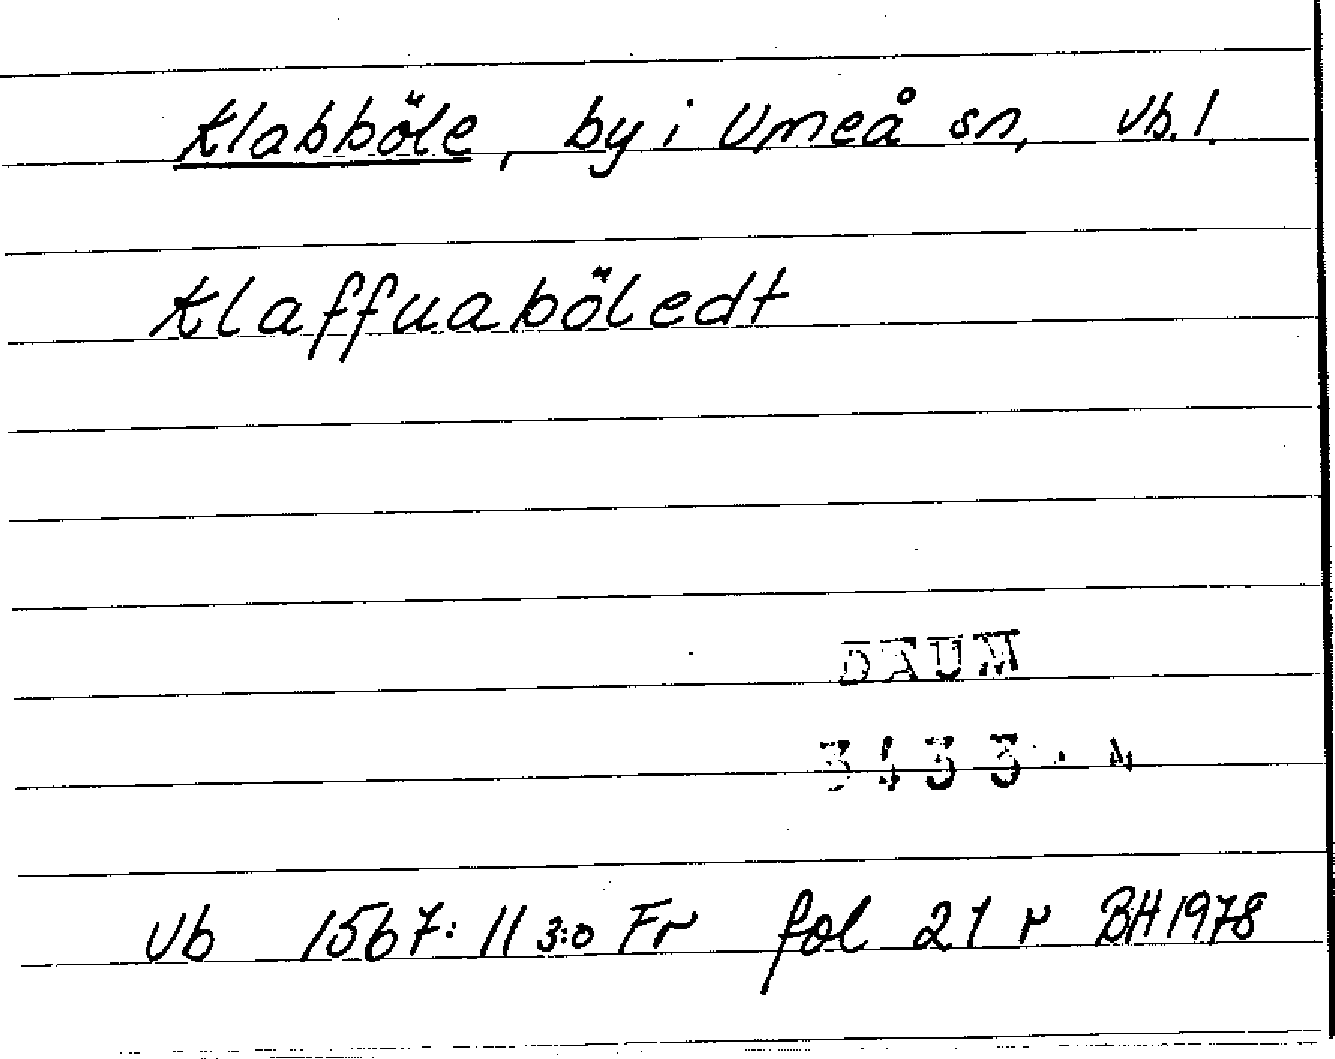 Klabböle, by i Umeå sn, Vb. l.
Klaffuaböledt
DAUM
3433. 4
Vb 1567:11 3:o Fr fol 21 r BH 1978